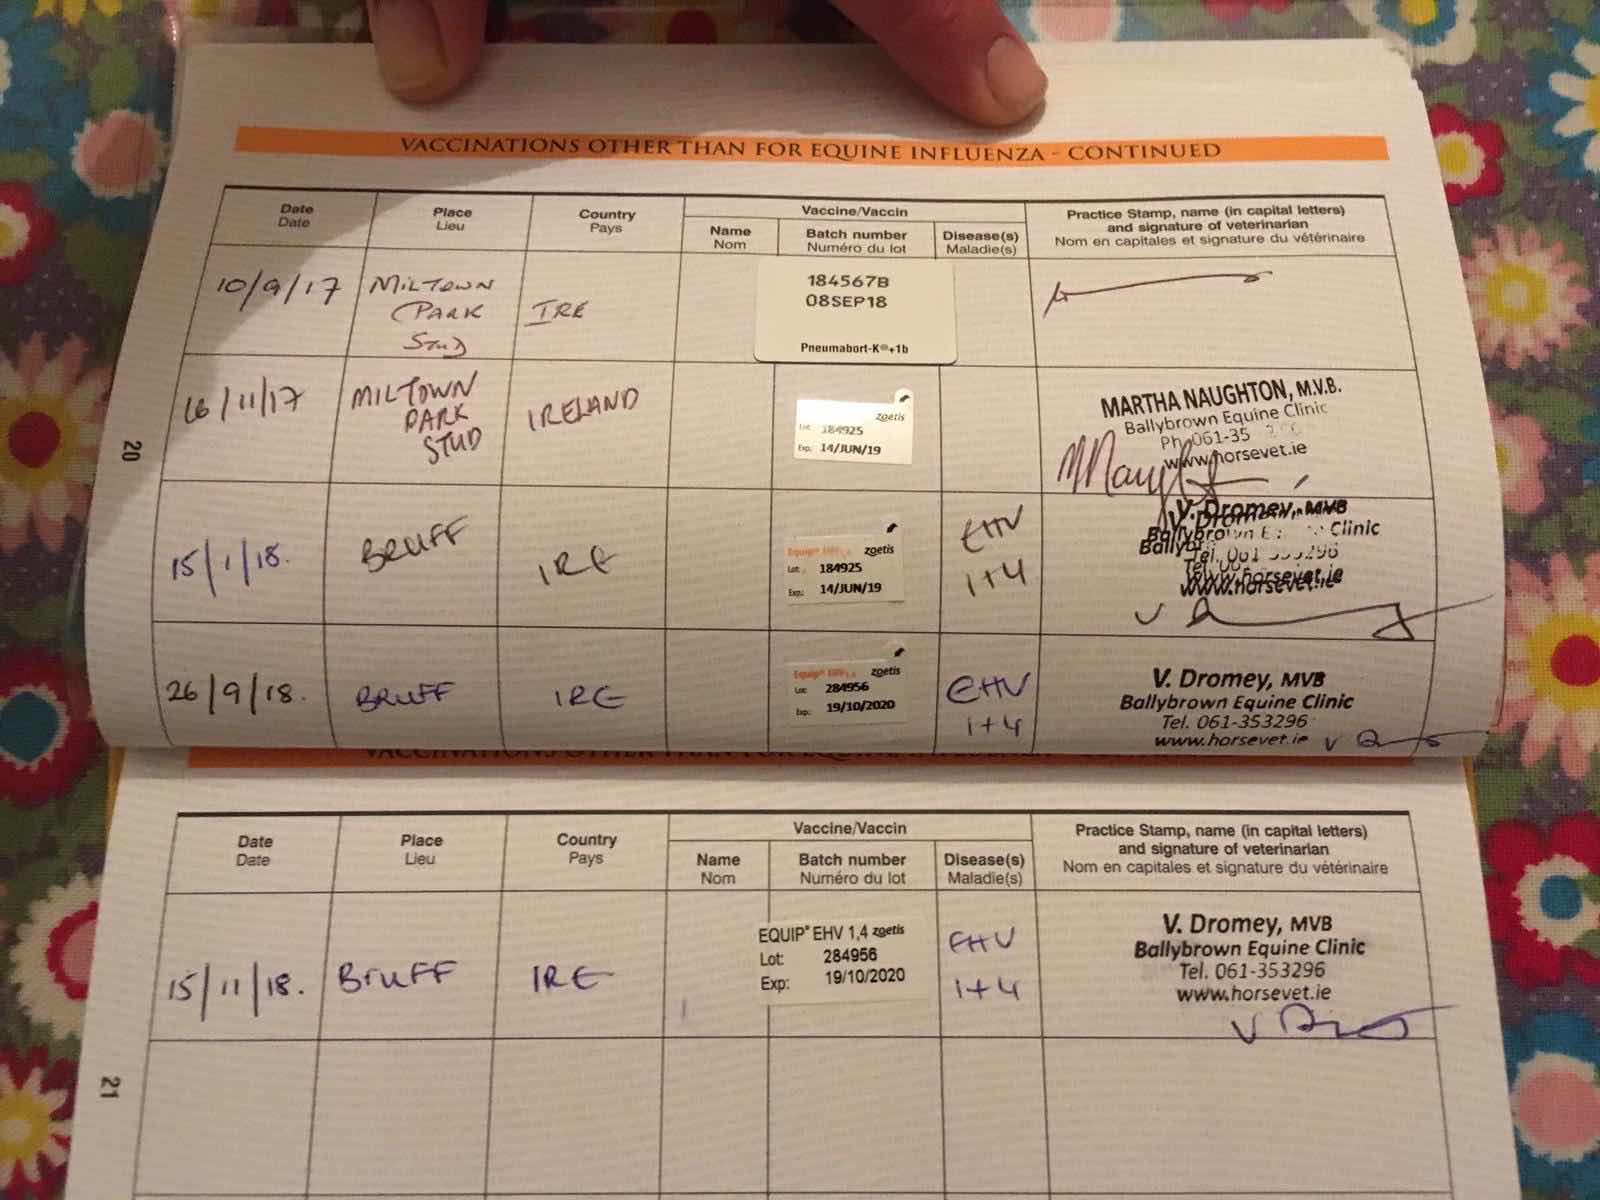 VACCINATIONS OTHER THAN FOR EQUINE INFLUENZA - CONTINUED
Date
Date
Place
Lieu
Country
Pays
Vaccine/Vaccin
Name
Nom
Batch number
Numéro du lot
Disease(s)
Maladie(s)
Practice Stamp, name (in capital letters)
and signature of veterinarian
Nom en capitales et signature du vétérinaire
10/9/17
MILTOWN
PARK
STUD
IRE
184567B
08SEP18
Pneumabort-K®+1b
16/11/17
MILTOWN
PARK
STUD
IRELAND
zoetis
Lot: 184925
Exp: 14/JUN/19
MARTHA NAUGHTON, M.V.B.
Ballybrown Equine Clinic
Ph 061-35
www.horsevet.ie
20
15/1/18.
BRUFF
IRE
Equip EHV 1,4 zoetis
Lot: 184925
Exp: 14/JUN/19
EHV
1+4
V. Dromey, MVB
Ballybrown Equine Clinic
Tel. 061-353296
www.horsevet.ie
26/9/18.
BRUFF
IRE
Equip EHV 1,4 zoetis
Lot: 284956
Exp: 19/10/2020
EHV
1+4
V. Dromey, MVB
Ballybrown Equine Clinic
Tel. 061-353296
www.horsevet.ie
VACCINATIONS OTHER THAN FOR EQUINE INFLUENZA
Date
Date
Place
Lieu
Country
Pays
Vaccine/Vaccin
Name
Nom
Batch number
Numéro du lot
Disease(s)
Maladie(s)
Practice Stamp, name (in capital letters)
and signature of veterinarian
Nom en capitales et signature du vétérinaire
15/11/18.
BrUFF
IRE
EQUIP® EHV 1,4 zoetis
Lot: 284956
Exp: 19/10/2020
EHV
1+4
V. Dromey, MVB
Ballybrown Equine Clinic
Tel. 061-353296
www.horsevet.ie
21